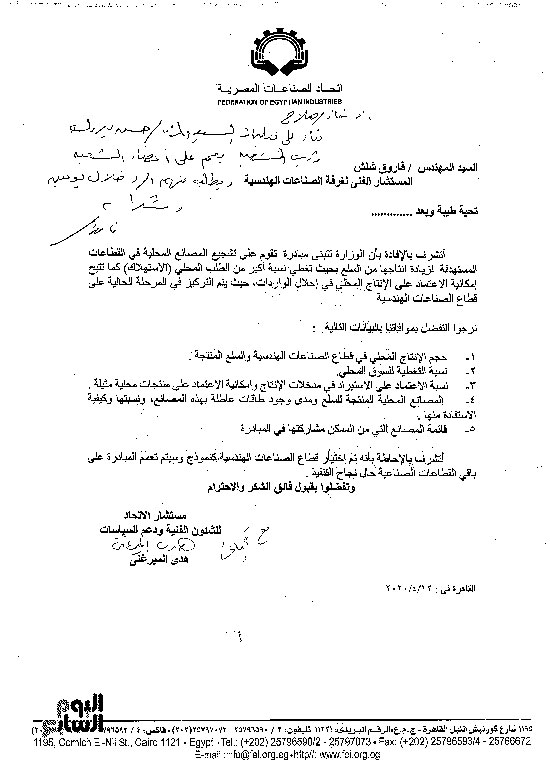 اتحاد الصناعات المصرية
FEDERATION OF EGYPTIAN INDUSTRIES
السيد المهندس / فاروق شلش
المستشار الفنى لغرفة الصناعات الهندسية
تحية طيبة وبعد .............
أتشرف بالإفادة بأن الوزارة تتبنى مبادرة تقوم على تشجيع المصانع المحلية في القطاعات
المستهدفة لزيادة انتاجها من السلع بحيث تغطي نسبة أكبر من الطلب المحلي (الاستهلاك) كما تتيح
إمكانية الاعتماد على الإنتاج المحلي في إحلال الواردات، حيث يتم التركيز في المرحلة الحالية على
قطاع الصناعات الهندسية
نرجوا التفضل بموافاتنا بالبيانات التالية :
١- حجم الإنتاج المحلي في قطاع الصناعات الهندسية والسلع المنتجة .
٢- نسبة التغطية للسوق المحلي.
٣- نسبة الاعتماد على الاستيراد في مدخلات الإنتاج وإمكانية الاعتماد على منتجات محلية مثيلة .
٤- المصانع المحلية المنتجة للسلع ومدى وجود طاقات عاطلة بهذه المصانع، ونسبتها وكيفية
الاستفادة منها .
٥- قائمة المصانع التي من الممكن مشاركتها في المبادرة
أتشرف بالإحاطة بأنه تم إختيار قطاع الصناعات الهندسية كنموذج وسيتم تعميم المبادرة على
باقي القطاعات الصناعية حال نجاح التنفيذ
وتفضلوا بقبول فائق الشكر والاحترام
مستشار الاتحاد
للشئون الفنية ودعم السياسات
هدى الميرغنى
القاهرة فى : ٢٠٢٠/٤/١٢
اليوم
السابع
١١٩٥ شارع كورنيش النيل القاهرة - ج.م.ع الرقم البريدى: ١١٢٢١ تليفون:
1195, Cornich El-Nil St., Cairo 1121 • Egypt • Tel.: (+202) 25796590/2 - 25797073 • Fax: (+202) 25796593/4 - 25766672